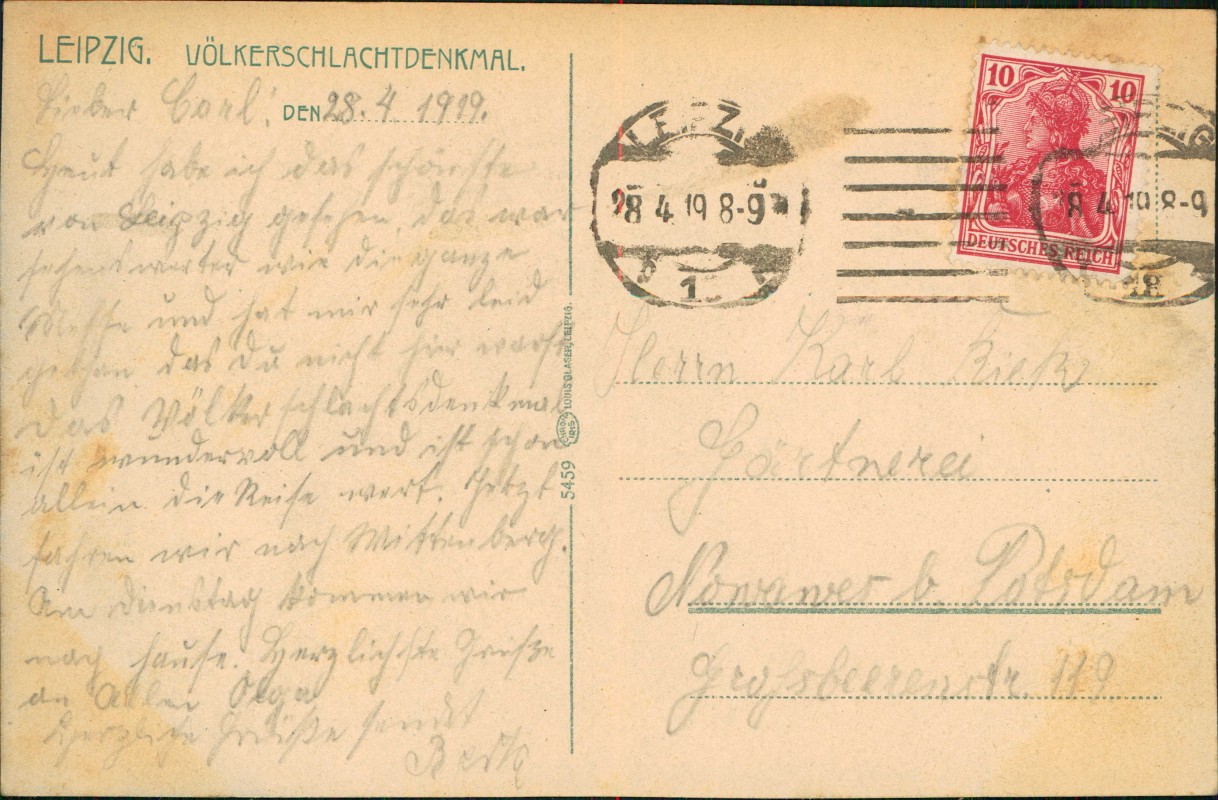 LEIPZIG. VÖLKERSCHLACHTDENKMAL.
Lieber Carl! DEN 28.4 1919.
Heut habe ich das schönste
von Leipzig gesehen, das war
sehenswerter wie die ganze
Messe und hat mir sehr leid
gethan das Du nicht hier warst
das Völkerschlachtsdenkmal
ist wundervoll und ist schon
allein die Reise wert. Jetzt
fahren wir nach Wittenberg.
Am Dienstag kommen wir
nach hause. Herzlichste Grüße
an Alle Olga
Herzliche Grüße sendet
5459 LOUIS GLASER, LEIPZIG.
LEIPZIG
28 4 19 8-9
1
10 10
DEUTSCHES REICH
8 4 19 8-9
Herrn Karl
Gärtnerei
Nowawes b. Potsdam
Grossbeerenstr. 119